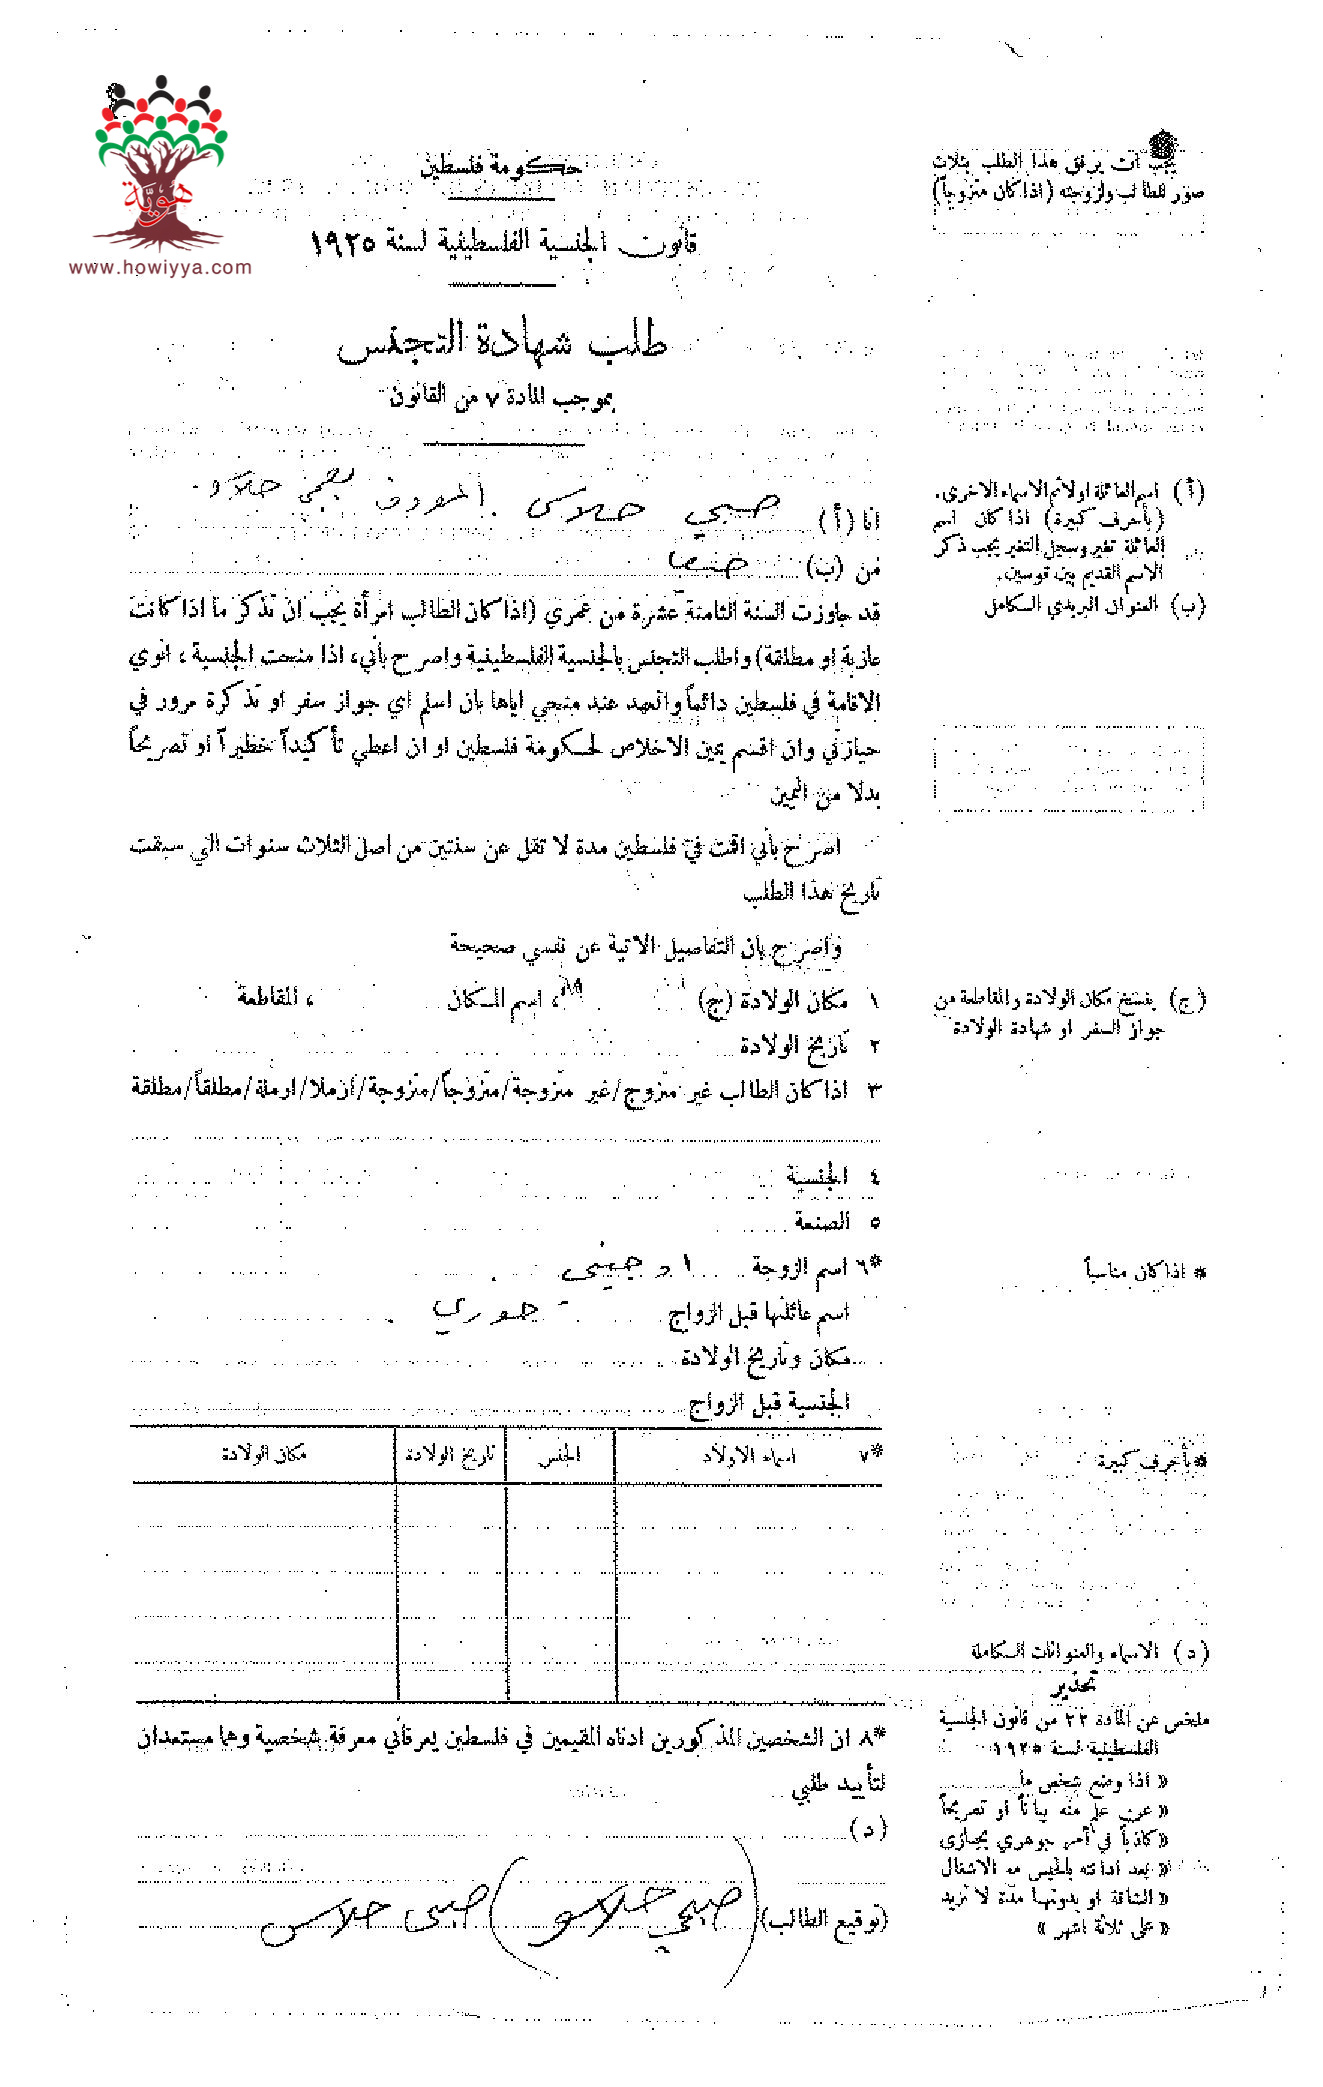 هوية
www.howiyya.com
حكومة فلسطين
قانون الجنسية الفلسطينية لسنة ١٩٢٥
طلب شهادة التجنس
بموجب المادة ٧ من القانون
يجب ان يرفق هذا الطلب بثلاث
صور للطالب ولزوجته (اذا كان متزوجاً)
انا (أ) صبحي حلاس المعروف بصبحي حلاو
من (ب)
قد جاوزت السنة الثامنة عشرة من عمري (اذا كان الطالب امرأة يجب ان تذكر ما اذا كانت
عازبة او مطلقة) واطلب التجنس بالجنسية الفلسطينية واصرح بأني، اذا منحت الجنسية، انوي
الاقامة في فلسطين دائماً واتعهد عند منحي اياها بان اسلم اي جواز سفر او تذكرة مرور في
حيازتي وان اقسم يمين الاخلاص لحكومة فلسطين او ان اعطي تأكيداً خطيراً او تصريحاً
بدلا من اليمين
اصرح بأني اقمت في فلسطين مدة لا تقل عن سنتين من اصل الثلاث سنوات التي سبقت
تاريخ هذا الطلب
واصرح بان التفاصيل الاتية عن نفسي صحيحة
١ مكان الولادة (ج) ، اسم المكان ، المقاطعة
٢ تاريخ الولادة
٣ اذا كان الطالب غير متزوج/غير متزوجة/متزوجاً/متزوجة/ارملا/ارملة/مطلقاً/مطلقة
٤ الجنسية
٥ الصنعة
*٦ اسم الزوجة
اسم عائلتها قبل الزواج حوري
مكان وتاريخ الولادة
الجنسية قبل الزواج
*٧ اسماء الاولاد الجنس تاريخ الولادة مكان الولادة
*٨ ان الشخصين المذكورين ادناه المقيمين في فلسطين يعرفانني معرفة شخصية وهما مستعدان
لتأييد طلبي
(د)
(توقيع الطالب) (صبحي حلاسو) صبحي حلاس
(أ) اسم العائلة اولا ثم الاسماء الاخرى.
(بأحرف كبيرة) اذا كان اسم
العائلة تغير وسجل التغير يجب ذكر
الاسم القديم بين قوسين.
(ب) العنوان البريدي الكامل
(ج) يفسخ مكان الولادة والمقاطعة من
جواز السفر او شهادة الولادة
* اذا كان مناسباً
* بأحرف كبيرة
(د) الاسماء والعنوانات الكاملة
تحذير
ملخص عن المادة ٢٢ من قانون الجنسية
الفلسطينية لسنة ١٩٢٥
« اذا وضع شخص ما
« عن علم منه بياناً او تصريحاً
« كاذباً في أمر جوهري يجازى
« بعد ادانته بالحبس مع الاشغال
« الشاقة او بدونها مدة لا تزيد
« على ثلاثة اشهر »